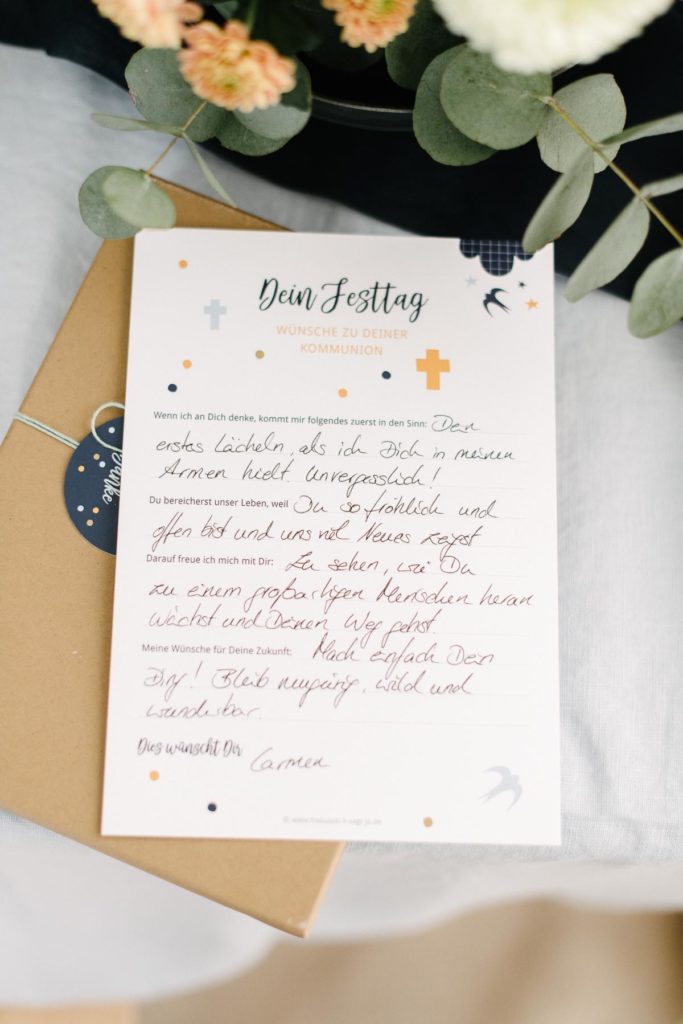 Dein Festtag
WÜNSCHE ZU DEINER
KOMMUNION
Wenn ich an Dich denke, kommt mir folgendes zuerst in den Sinn: Dein
erstes Lächeln, als ich Dich in meinen
Armen hielt. Unvergesslich!
Du bereicherst unser Leben, weil Du so fröhlich und
offen bist und uns viel Neues zeigst
Darauf freue ich mich mit Dir: Zu sehen, wie Du
zu einem großartigen Menschen heran
wächst und Deinen Weg gehst.
Meine Wünsche für Deine Zukunft: Mach einfach Dein
Ding! Bleib neugierig, wild und
wunderbar.
Dies wünscht Dir Carmen
© www.fraeulein-k-sagt-ja.de
Danke